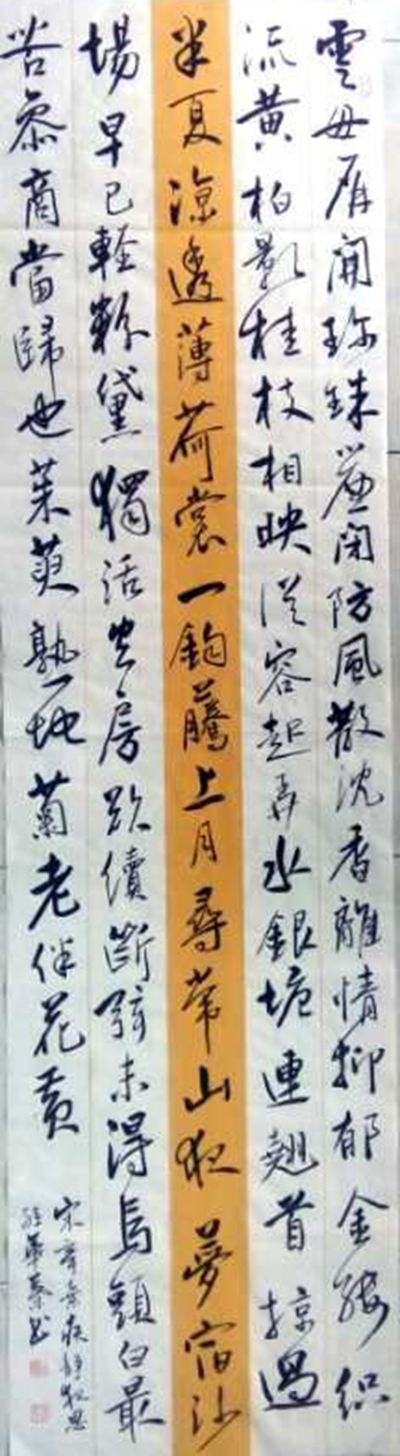 雲母屏開珍珠簾閉防風散沈香離情抑郁金縷織
流黃柏影桂枝相映從容起弄水銀塘連翹首掠過
半夏涼透薄荷裳一鉤藤上月尋常山夜夢宿沙
場早已輕粉黛獨活空房欲續斷弦未得烏頭白最
苦參商當歸也茱萸熟地蘭老伴花黃
宋辛棄疾靜夜思